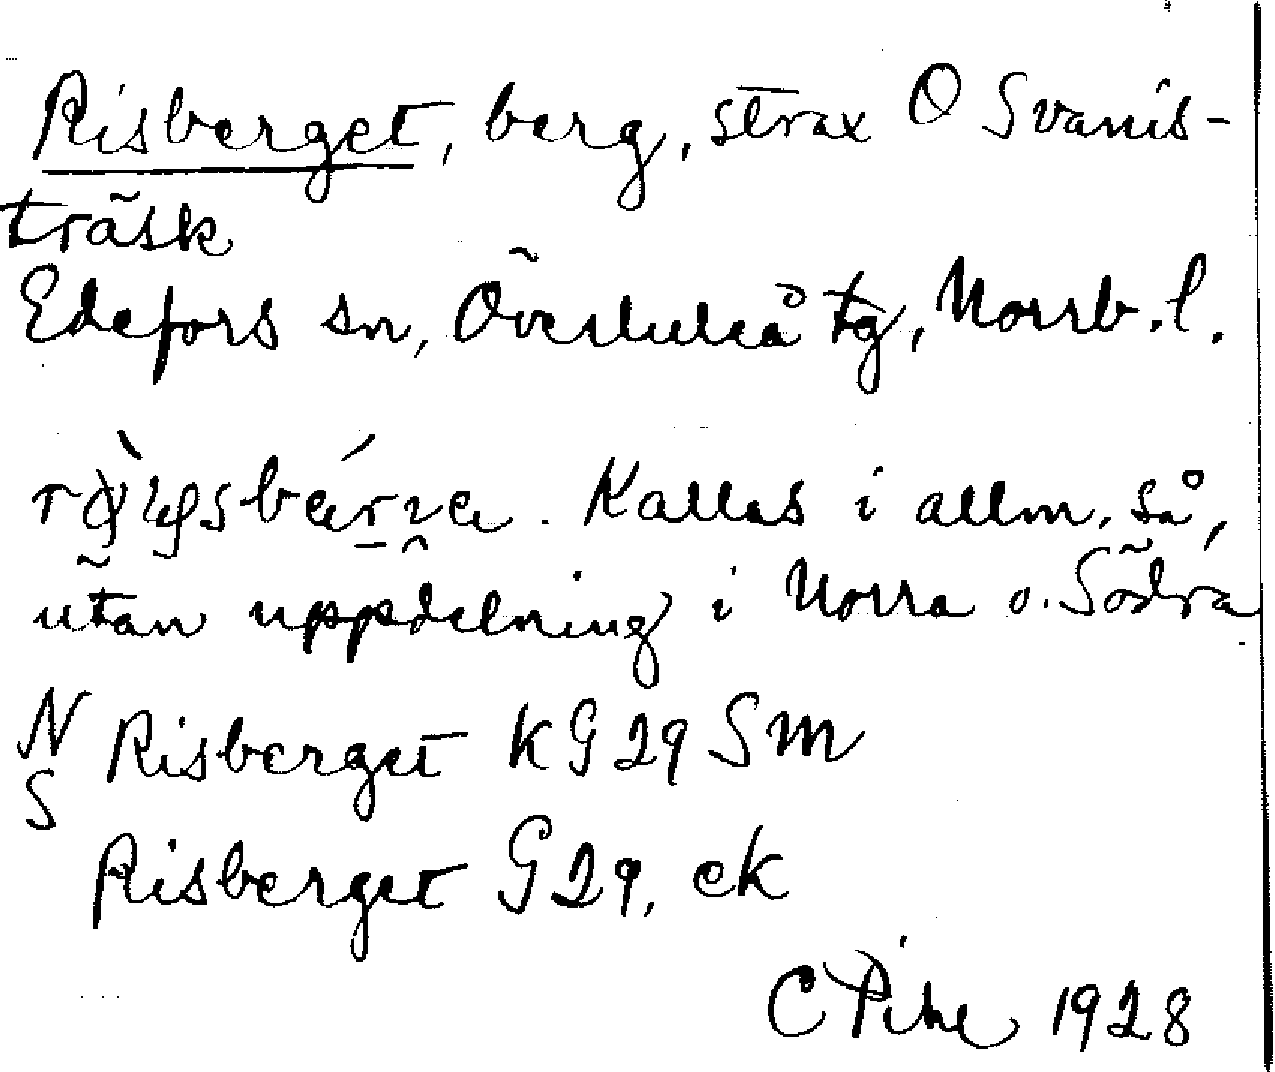 Risberget, berg, strax O Svanis-
träsk
Edefors sn, Överluleå tg, Norrb. l.
Kallas i allm. så,
utan uppdelning i Norra o. Södra
N Risberget KG29 SM
S
Risberget G29, ek
C Pihl 1928